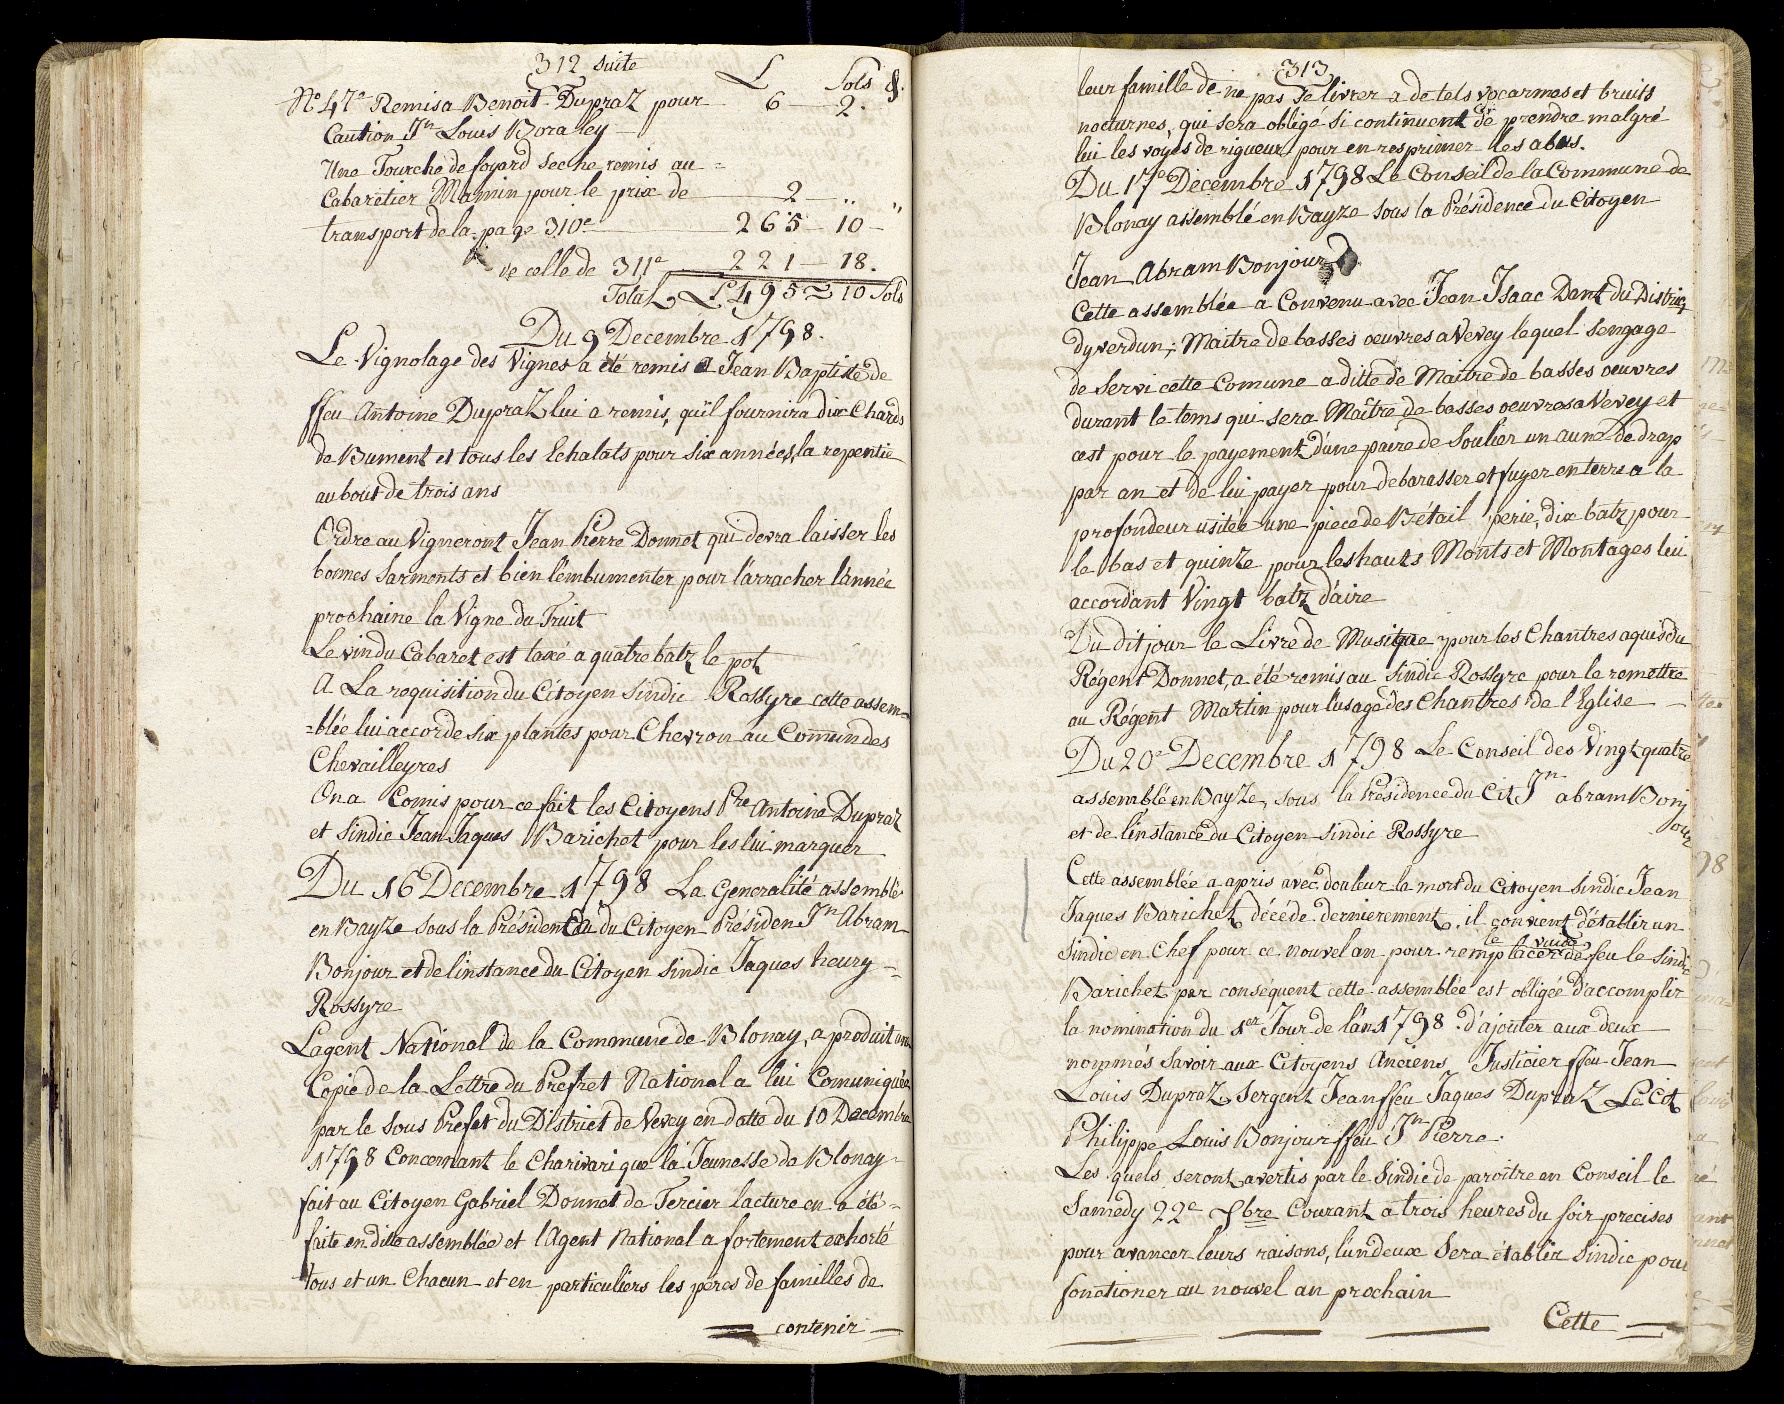 312 suite
L Sols &.
N.º 47e Remis a Benoit Dupraz pour 6 2.
Caution Jn Louis Boraley
Une Fourche de foyard seche remis au =
Cabaretier Mamin pour le prix de 2 „ „
transport de la page 310e 265 10
de celle de 311e 221 18.
Total L 495 = 10 Sols
Du 9 Decembre 1798.
Le Vignolage des Vignes a été remis a Jean Baptiste de
ffeu Antoine Dupraz lui a remis, qu'il fournira dix Chards
de Bument et tous les Echalats pour six années, la repentie
au bout de trois ans
Ordre au Vigneront Jean Pierre Donnet qui devra laisser les
bonnes Sarments et bien l'embumenter pour l'arracher l'année
prochaine la Vigne du Fruit
Le vin du Cabaret est taxé a quatre batz le pot
A La requisition du Citoyen Sindic Rossyre cette assem-
=blée lui accorde six plantes pour Chevron au Comun des
Chevailleyres
On a Comis pour ce fait les Citoyens Pre Antoine Dupraz
et Sindic Jean Jaques Barichet pour les lui marquer
Du 16 Decembre 1798 La Generalité assemblée
en Bayze sous la Présidence du Citoyen Présiden Jn Abram
Bonjour et de l'instance du Citoyen Sindic Jaques heury =
Rossyre
Lagent National de la Commune de Blonay, a produit une
Copie de la Lettre du Prefhet National a lui Comuniquée
par le Sous Prefet du District de Vevey en datte du 10 Decembre
1798 Concernant le Charivari que la Jeunesse de Blonay =
fait au Citoyen Gabriel Donnet de Tercier lacture en a été =
faite en ditte assemblée et l'Agent National a fortement exhorté
tous et un Chacun et en particuliers les peres de familles de
contenir
313
leur famille de ne pas se livrer a de tels vocarmes et bruits
nocturnes, qui sera obligé si continuent de prendre malgré
lui les voyes de rigueur, pour en resprimer les abus.
Du 17e Decembre 1798 Le Conseil de la Commune de
Blonay assemblé en Bayze sous la Présidence du Citoyen
Jean Abram Bonjour
Cette assemblée a Convenu avec Jean Isaac Dant du District
dyverdun, Maitre de basses oeuvres a Vevey lequel s'engage
de Servi cette Comune a ditte de Maitre de basses oeuvres
durant le tems qui sera Maître de basses oeuvres a Vevey et
cest pour le payement d'une paire de Soulier un aune de drap
par an et de lui payer pour debarasser et fuyer en terre a la
profondeur usitée une piece de Bétail perie, dix batz pour
le bas et quinze pour les hauts Monts et Montages lui
accordant Vingt batz d'aire
Du dit jour le Livre de Musique pour les Chantres aquis du
Régent Donnet, a été remis au Sindic Rossyre pour le remettre
au Régent Martin pour l'usage des Chantres de l'Eglise
Du 20e Decembre 1798 Le Conseil des Vingt quatre
assemblé en Bayze, sous la Présidence du Cit Jn abram Bonj
our
et de l'instance du Citoyen Sindic Rossyre
Cette assemblée a apris avec douleur la mort du Citoyen Sindic Jean
Jaques Barichet décédé dernierement, il convient d'établir un
le vuide
Sindic en Chef pour ce nouvel an pour remplacer de feu le Sindic
Barichet par conséquent cette assemblée est obligée d'accomplir
la nomination du 1er Jour de l'an 1798 d'ajouter aux deux
nommés Savoir aux Citoyens Anciens Justicier ffeu Jean
Louis Dupraz, Sergent Jean ffeu Jaques Dupraz Le Cit
Philippe Louis Bonjour ffeu Jn Pierre.
Les quels seront avertis par le Sindic de paroitre en Conseil le
Samedy 22e Xbre Courant a trois heures du soir precises
pour avancer leurs raisons, l'un deux Sera établir Sindic pour
fonctioner au nouvel an prochain
Cette